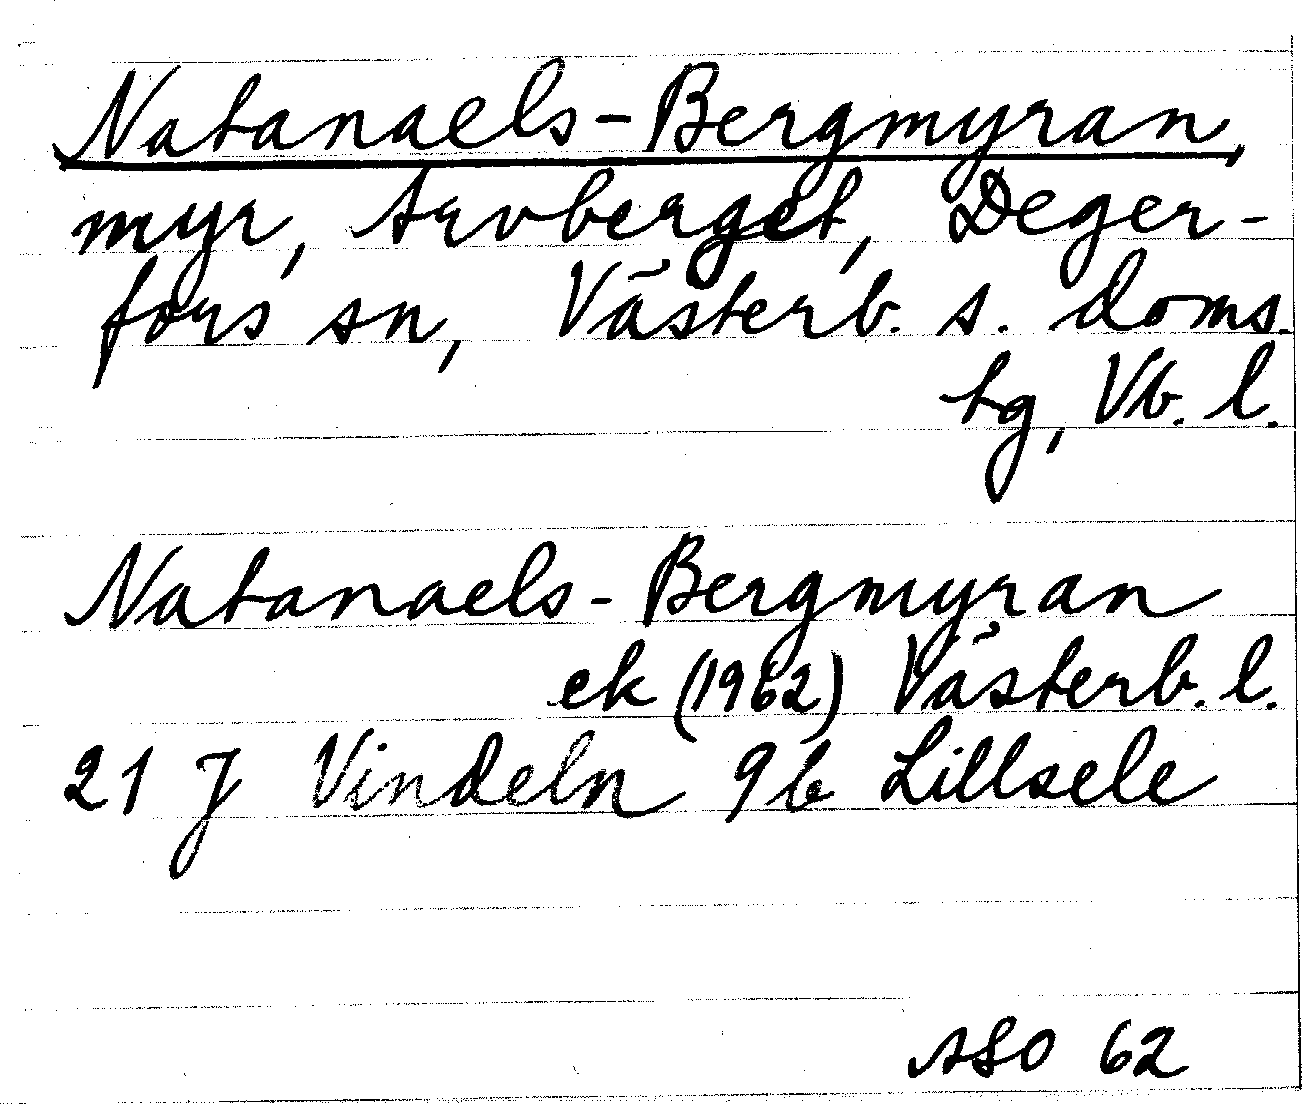 Natanaels-Bergmyran,
myr, Arvberget, Deger-
fors sn, Västerb. s. doms.
tg, Vb. l.
Natanaels-Bergmyran
ek (1962) Västerb. l.
21 J Vindeln 9b Lillsele
ASO 62